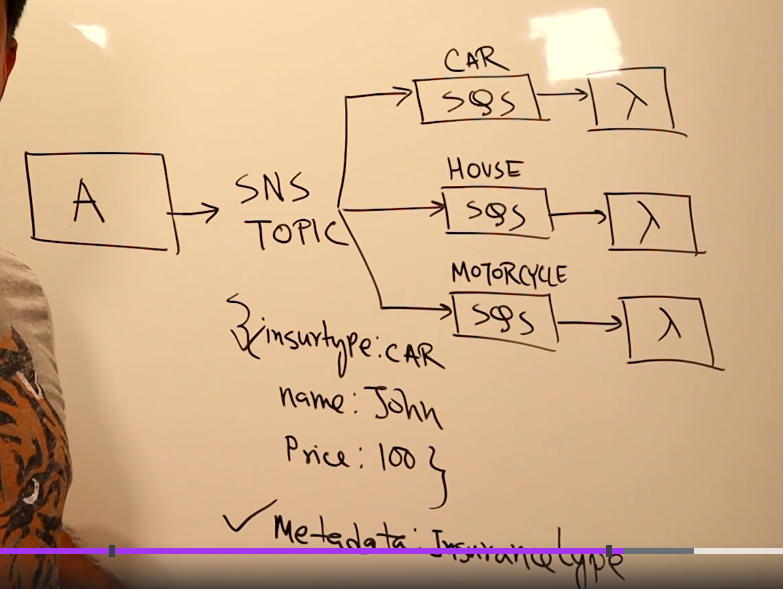 A
SNS
TOPIC
CAR
SQS
λ
HOUSE
SQS
λ
MOTORCYCLE
SQS
λ
{insurtype: CAR
name: John
Price: 100 }
✓ Metadata: Insurancetype